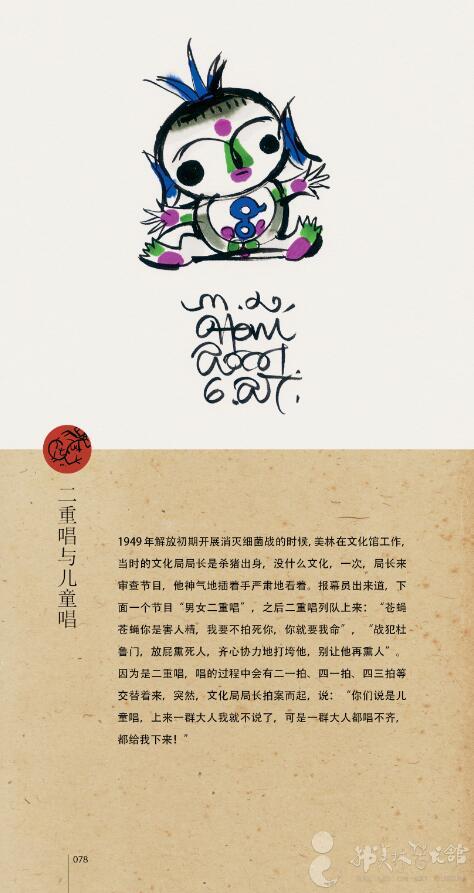 m.l.
6.
二重唱与儿童唱
1949年解放初期开展消灭细菌战的时候,美林在文化馆工作,
当时的文化局局长是杀猪出身，没什么文化，一次，局长来
审查节目，他神气地插着手严肃地看着。报幕员出来道，下
面一个节目“男女二重唱”，之后二重唱列队上来：“苍蝇
苍蝇你是害人精，我要不拍死你，你就要我命”，“战犯杜
鲁门，放屁熏死人，齐心协力地打垮他，别让他再熏人”。
因为是二重唱，唱的过程中会有二一拍、四一拍、四三拍等
交替着来，突然，文化局局长拍案而起，说：“你们说是儿
童唱，上来一群大人我就不说了，可是一群大人都唱不齐，
都给我下来！”
078
韩美林艺术馆